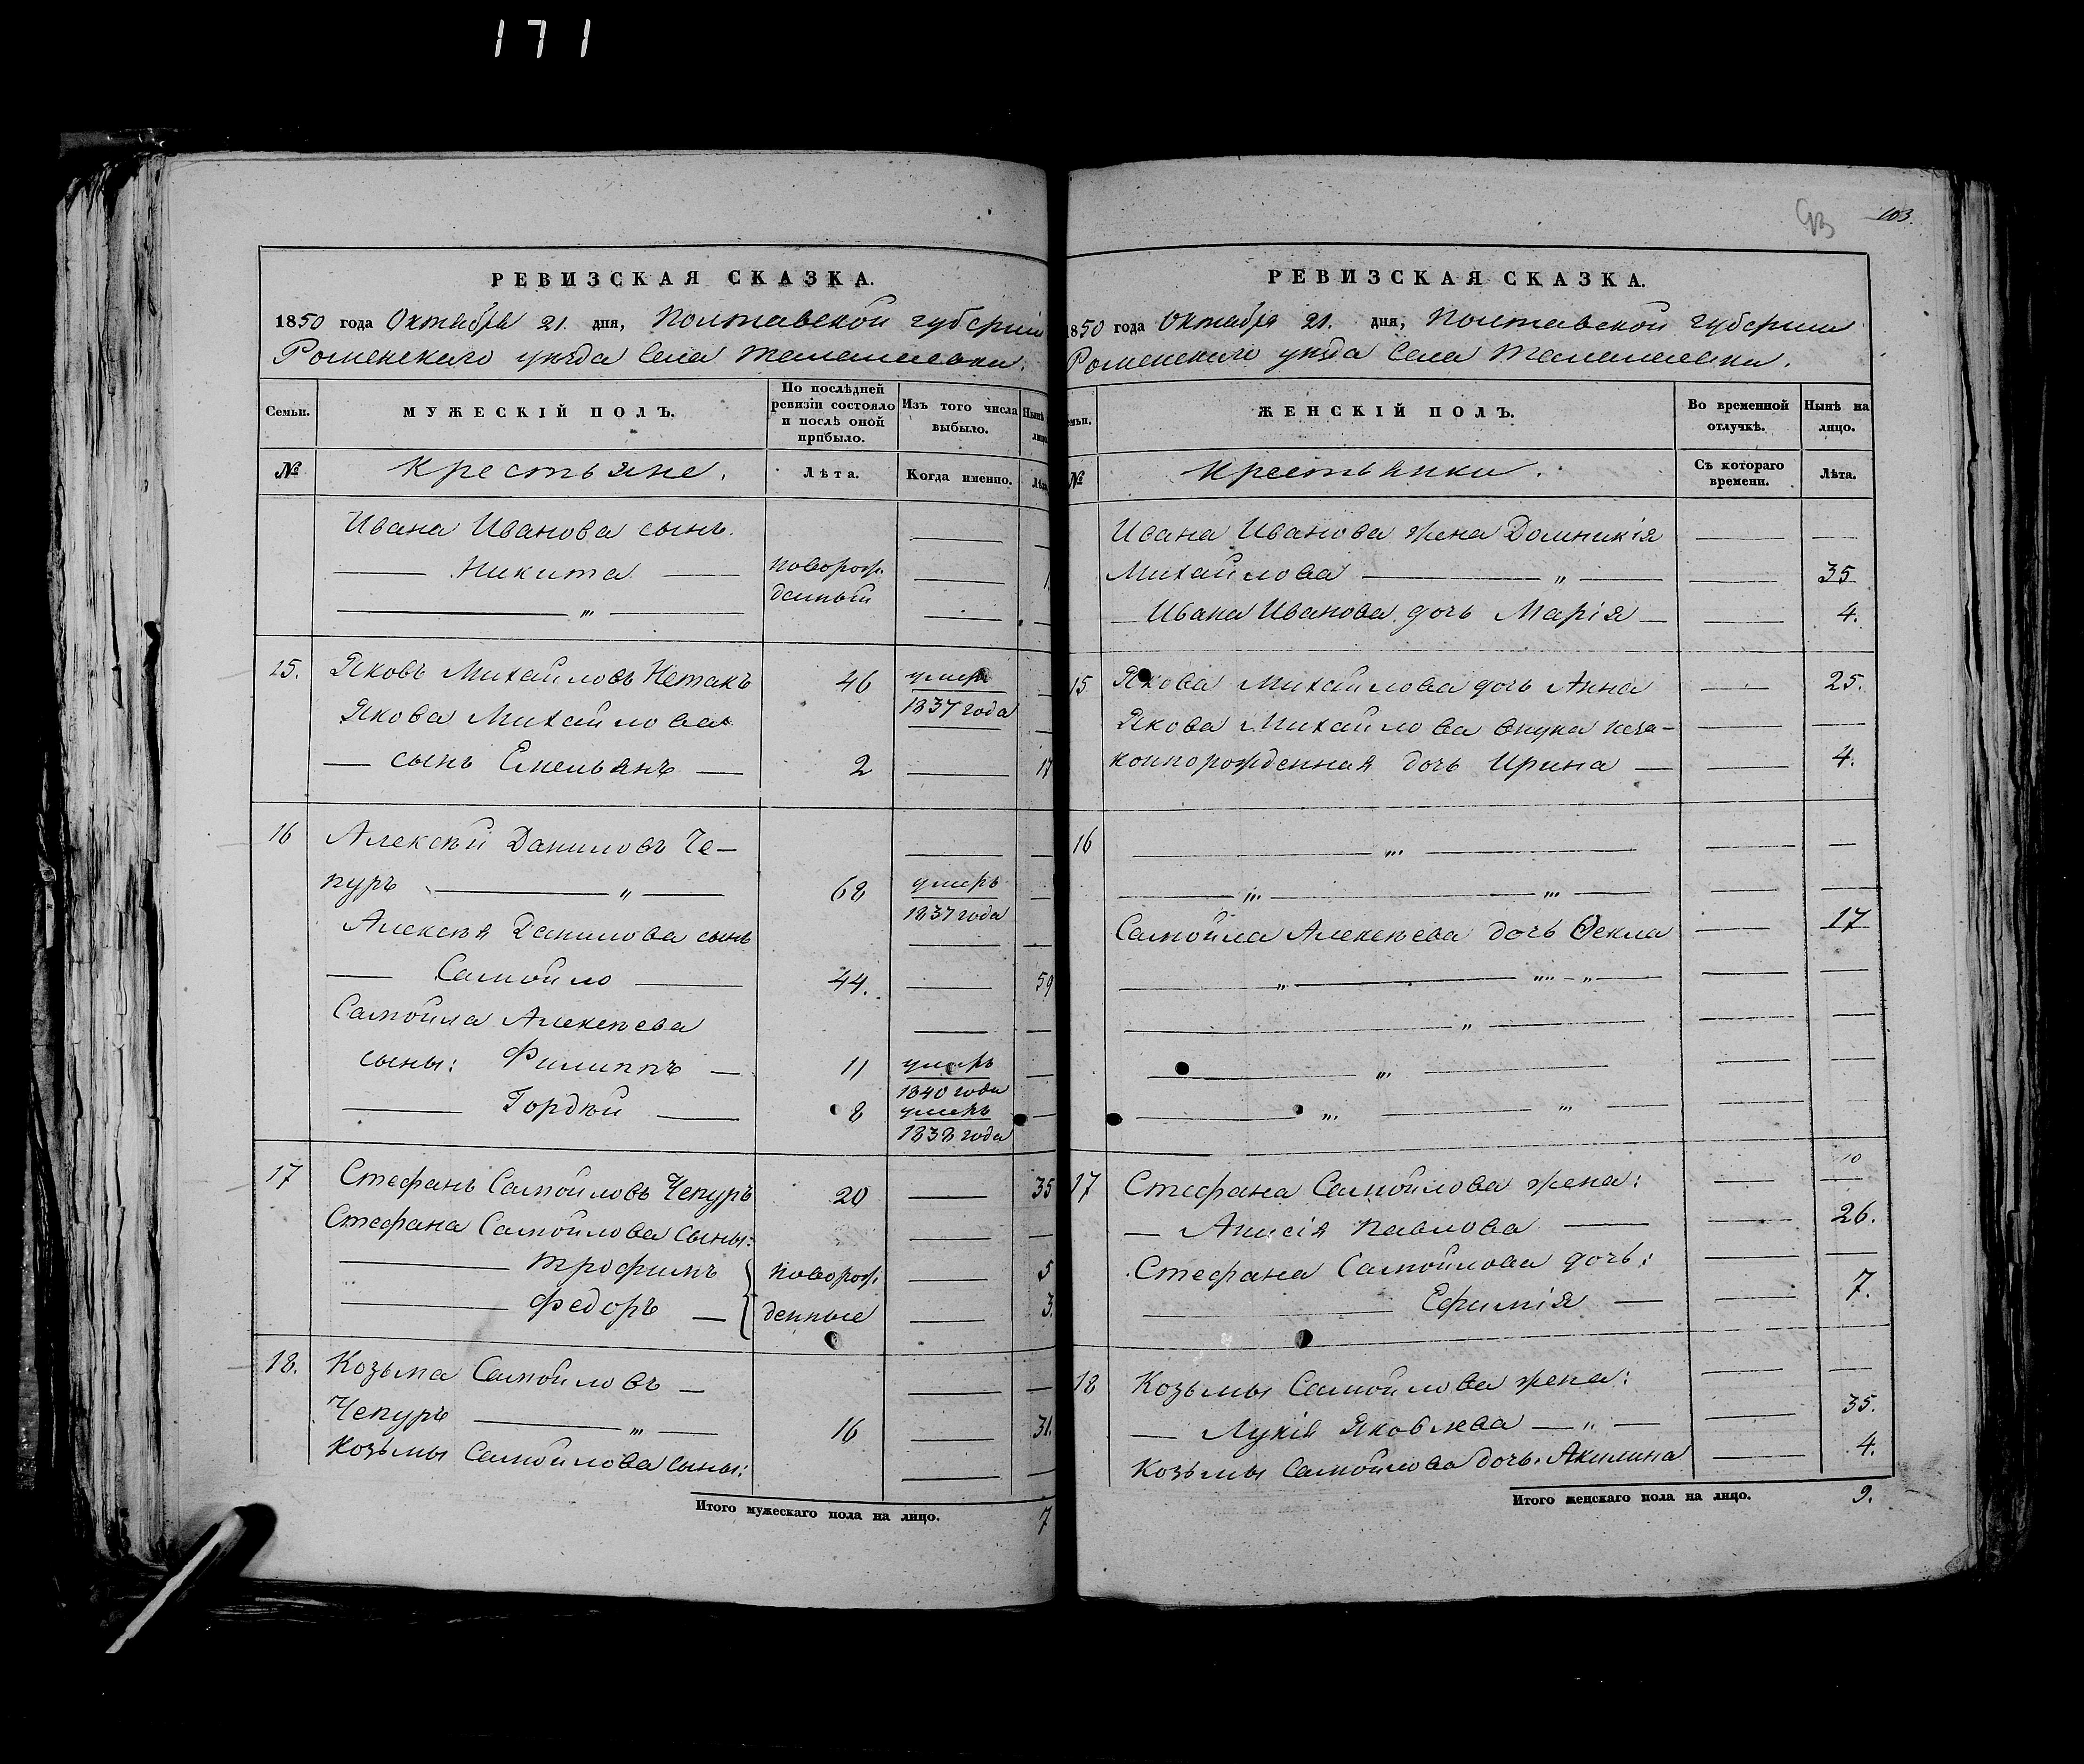 171
РЕВИЗСКАЯ СКАЗКА.
1850 года Октября 21. дня, Полтавской губерніи
Роменскаго уѣзда Села
Семьи.
МУЖЕСКІЙ ПОЛЪ.
По послѣдней ревизіи состояло и послѣ оной прибыло.
Изъ того числа выбыло.
№
Крестьяне.
Лѣта.
Когда именно.
Ивана Иванова сынъ.
Никита новорож-
денный
15. Яковъ Михайловъ Нетакъ 46 умеръ
Якова Михайлова 1837 года
сынъ Емельянъ 2 17
16 Алексѣй Даниловъ Че-
пуръ 68 умеръ
1837 года
Алексѣя Данилова сынъ
Самойло 44. 59
Самойла Алексѣева
сыны: Филиппъ 11 умеръ
1840 года
Гордѣй 8 умеръ
1838 года
17 Стефанъ Самойловъ Чепуръ 20 35
Стефана Самойлова сыны:
Трофимъ новорож. 5
Федоръ денные 3.
18. Козьма Самойловъ
Чепуръ 16 31.
Козьмы Самойлова сыны:
Итого мужескаго пола на лицо. 7
103.
РЕВИЗСКАЯ СКАЗКА.
1850 года Октября 21. дня, Полтавской губерніи
Роменскаго уѣзда Села
ЖЕНСКІЙ ПОЛЪ.
Во временной отлучкѣ.
Нынѣ на лицо.
№
Крестьянки.
Съ котораго времени.
Лѣта.
Ивана Иванова жена Домникія
Михайлова 35
Ивана Иванова дочь Марія 4.
15 Якова Михайлова дочь Анна 25.
Якова Михайлова внука неза-
коннорожденная дочь Ирина 4.
16
Самойла Алексѣева дочь Ѳекла 17
10
17 Стефана Самойлова жена:
Анисія Павлова 26.
Стефана Самойлова дочь:
Ефимія 7.
18 Козьмы Самойлова жена:
Лукія Яковлева 35.
Козьмы Самойлова дочь. Акилина 4.
Итого женскаго пола на лицо. 9.